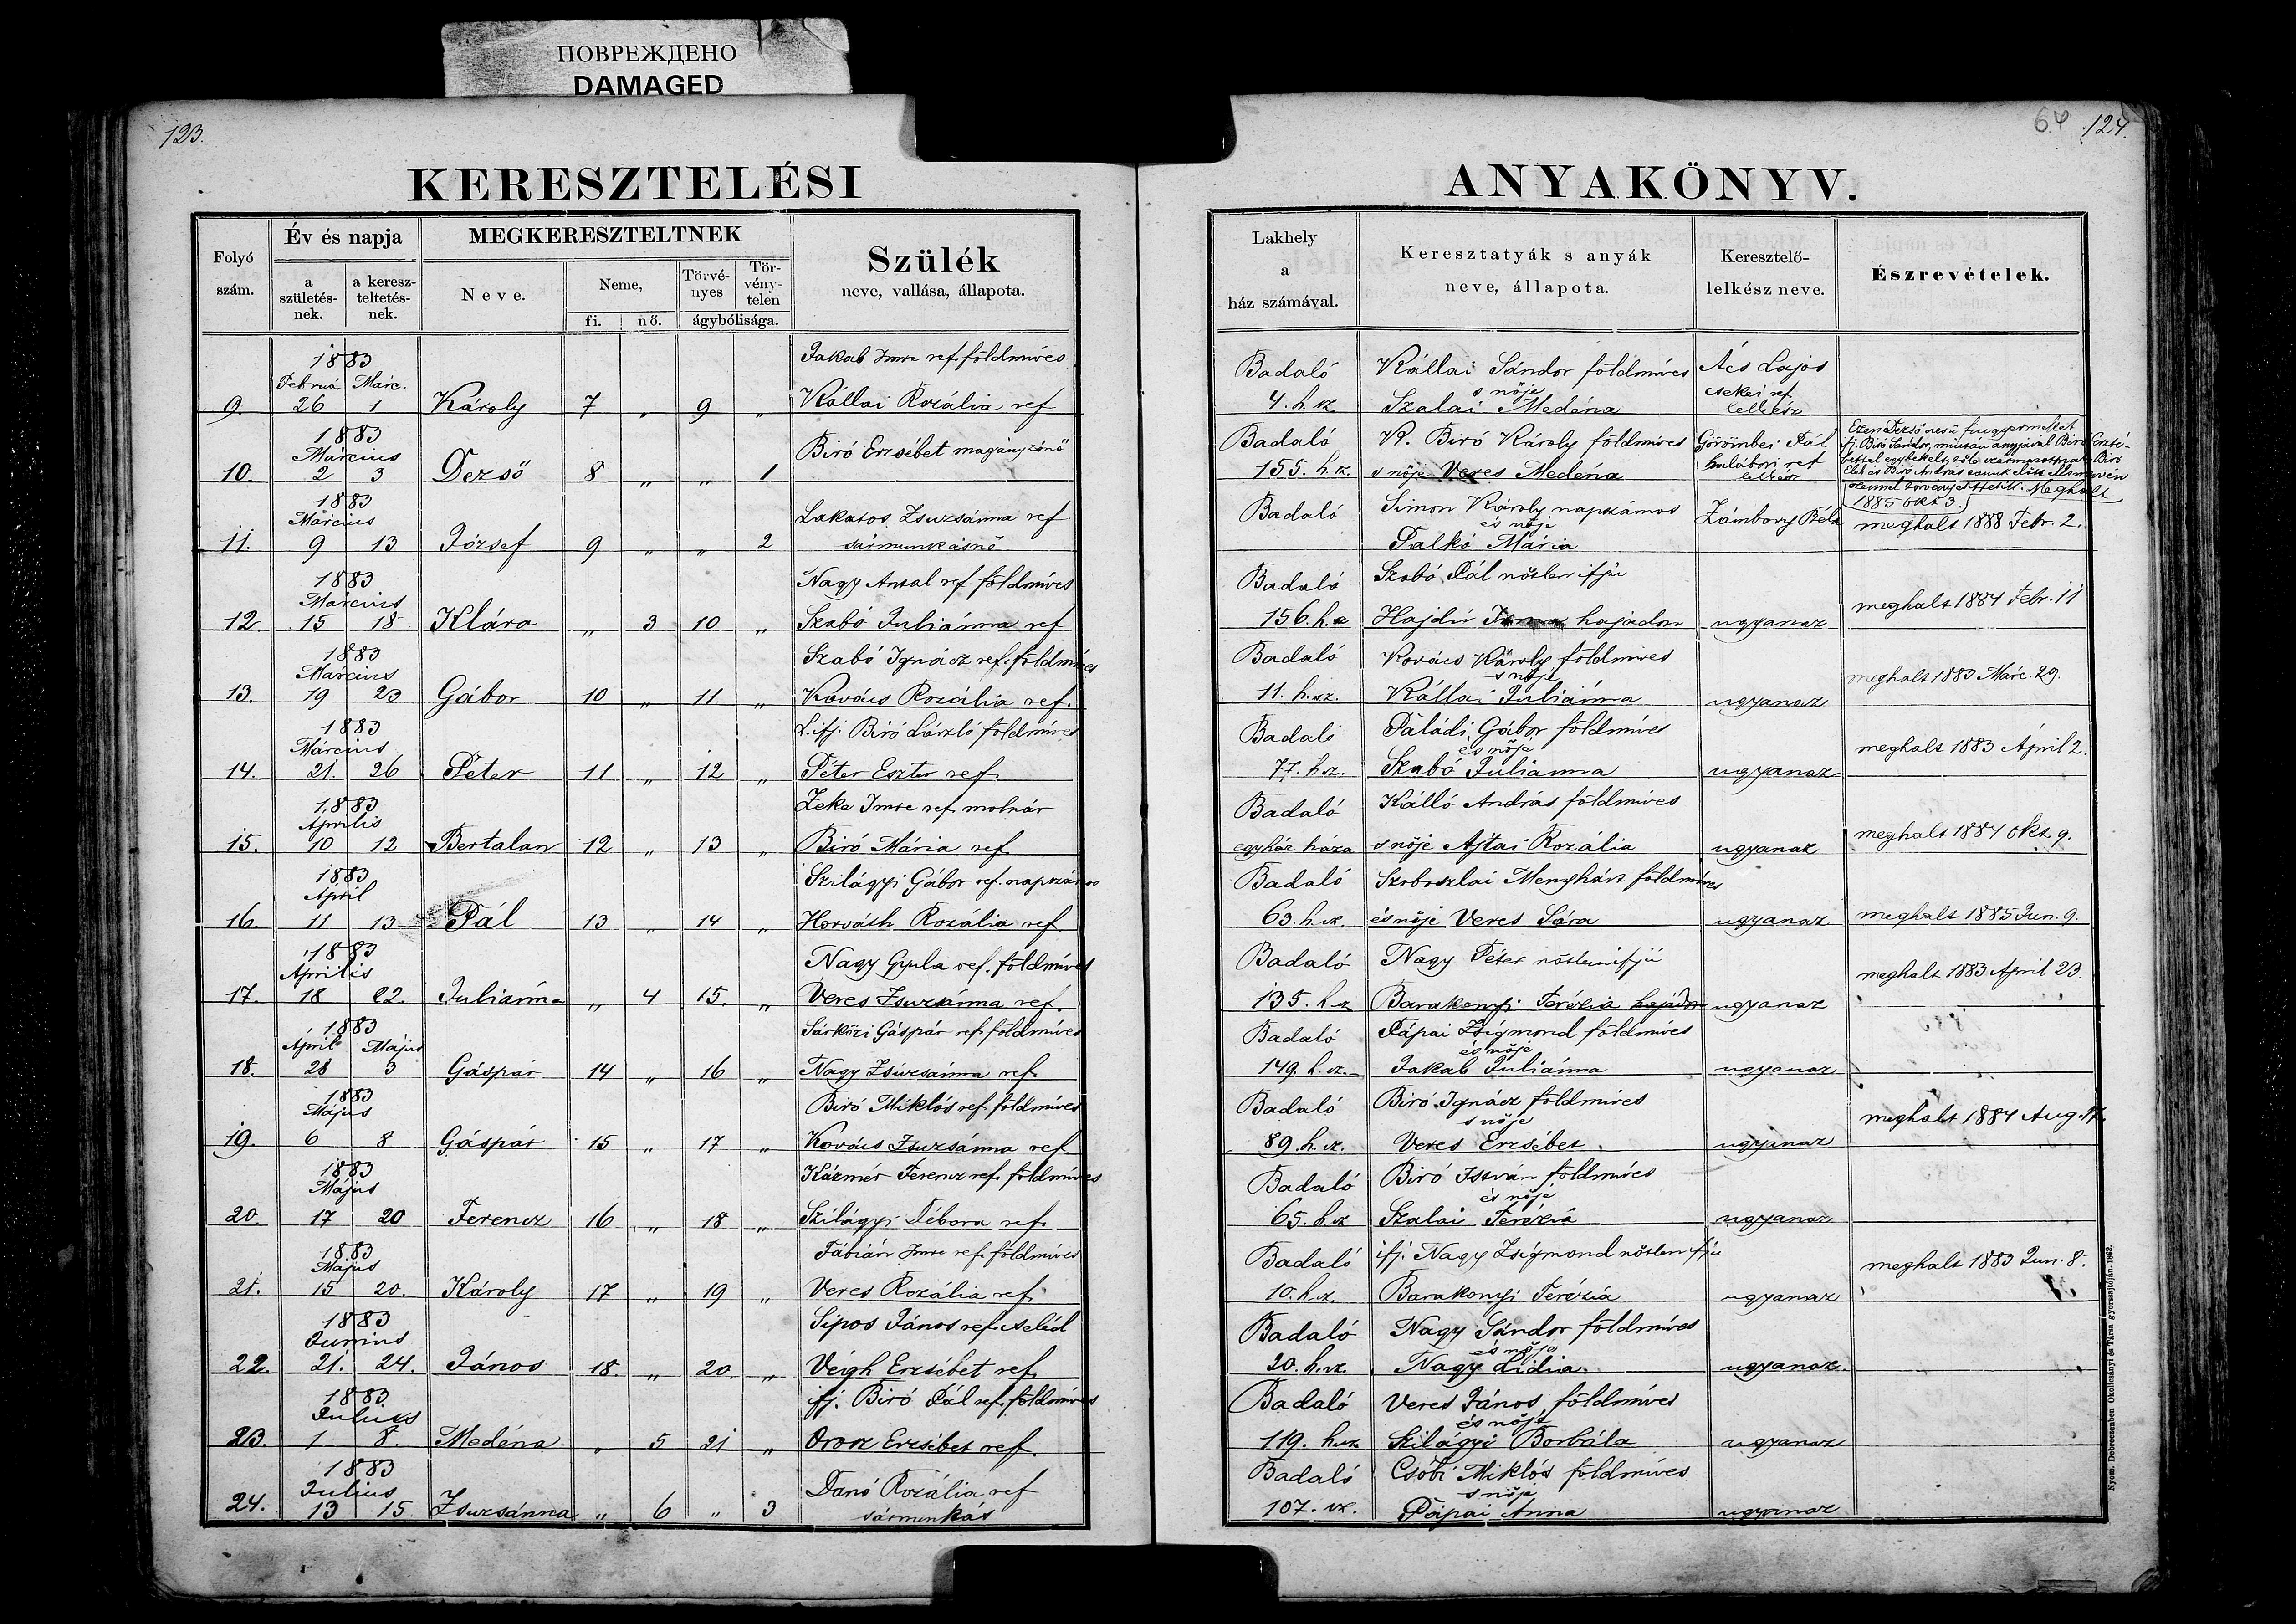 ПОВРЕЖДЕНО
DAMAGED
123.
64 124.
KERESZTELÉSI
ANYAKÖNYV.
Folyó szám.
Év és napja
a születés-nek.
a keresz-teltetés-nek.
MEGKERESZTELTNEK
Neve.
Neme,
fi.
nő.
Törvé-nyes
Tör-vény-telen
ágybólisága.
Szülék
neve, vallása, állapota.
Lakhely
a
ház számával.
Keresztatyák s anyák
neve, állapota.
Keresztelő-
lelkész neve.
Észrevételek.
1883 Jakab Imre ref. földmíves Badaló Kállai Sándor földmíves Ács Lajos
Február Márc. s nője csekei ref
9. 26 1 Károly 7 „ 9 „ Kállai Rozália ref 4. h. sz. Szalai Medéna lelkész
1883 Biró Erzsébet magánzónő Badaló K. Biró Károly földmíves Görömbei Pál Ezen Dezső nevű
Március ifj. Biró Sándor, miután anyjával Biró Erzsé-
10. 2 3 Dezső 8 „ „ 1 155. h. sz. s nője Veres Medéna ref lelkész
Biró András Meghalt
1883 Lakatos Zsuzsánna ref Badaló Simon Károly napszámos Zámbory Béla 1885 okt 3.
Március és nője meghalt 1888 Febr. 2.
11. 9 13 József 9 „ „ 2 sármunkásnő Palkó Mária
1883 Nagy Antal ref. földmíves Badaló Szabó Pál nőtlen ifjú
Március meghalt 1884 Febr. 11
12. 15 18 Klára „ 3 10 „ Szabó Juliánna ref 156. h. sz Hajdú hajadon ugyanaz
1883 Szabó Ignácz ref. földmíves Badaló Kovács Károly földmíves
Március s nője meghalt 1883 Márc. 29.
13. 19 23 Gábor 10 „ 11 „ Kovács Rozália ref. 11. h. sz. Kállai Juliánna ugyanaz
1883 L. ifj. Biró László földmíves Badaló Paládi Gábor földmíves
Március és nője meghalt 1883 April 2.
14. 21. 26 Péter 11 „ 12 „ Péter Eszter ref. 77. h. sz. Szabó Julianna ugyanaz
1883 Zeke Imre ref. molnár Badaló Kálló András földmíves
Aprilis meghalt 1884 okt. 9.
15. 10 12 Bertalan 12 „ 13 „ Biró Mária ref. egyház háza s nője Ajtai Rozália ugyanaz
1883 Szilágyi Gábor ref. napszámos Badaló Szoboszlai Menyhárt földmíves
April
16. 11 13 Pál 13 „ 14 „ Horváth Rozália ref 63. h. sz. és nője Veres Sára ugyanaz meghalt 1885 Jun. 9.
1883 Nagy Gyula ref. földmíves Badaló Nagy Péter nőtlen ifjú
Aprilis meghalt 1883 April 23.
17. 18 22. Juliánna „ 4 15. „ Veres Zsuzsánna ref. 135. h. sz Barakonyi Terézia hajadon ugyanaz
1883 Sárközi Gáspár ref. földmíves Badaló Pápai Zsigmond földmíves
April Május és nője
18. 28 3 Gáspár 14 „ 16 „ Nagy Zsuzsánna ref. 149. h. sz. Jakab Juliánna ugyanaz
1883 Biró Miklós ref. földmíves Badaló Biró Ignácz földmíves
Május s nője meghalt 1884 Aug. 17.
19. 6 8 Gáspár 15 „ 17 „ Kovács Zsuzsánna ref. 89. h. sz. Veres Erzsébet ugyanaz
1883 Kázmér Ferencz ref. földmíves Badaló Biró István földmíves
Május és nője
20. 17 20 Ferencz 16 „ 18 „ Szilágyi Débora ref. 65. h. sz Szalai Terézia ugyanaz
1883 Fábián Imre ref. földmíves Badaló ifj. Nagy Zsigmond nőtlen ifju
Május meghalt 1883 Jun. 8.
21. 15 20. Károly 17 „ 19 „ Veres Rozália ref. 10. h. sz. Barakonyi Terézia ugyanaz
1883 Sipos János ref. cseléd Badaló Nagy Sándor földmíves
Junius és nője
22. 21. 24. János 18. „ 20. „ Végh Erzsébet ref. 20. h. sz. Nagy Lidia ugyanaz.
1883 ifj. Biró Pál ref. földmíves Badaló Veres János földmíves
Julius és nője
23. 1 8. Medéna „ 5 21 „ Orosz Erzsébet ref. 119. h. sz Szilágyi Borbála ugyanaz
1883 Danó Rozália ref Badaló Csóbi Miklós földmíves
Julius s nője
24. 13 15 Zsuzsánna „ 6 „ 3 sármunkás 107. sz. Pápai Anna ugyanaz